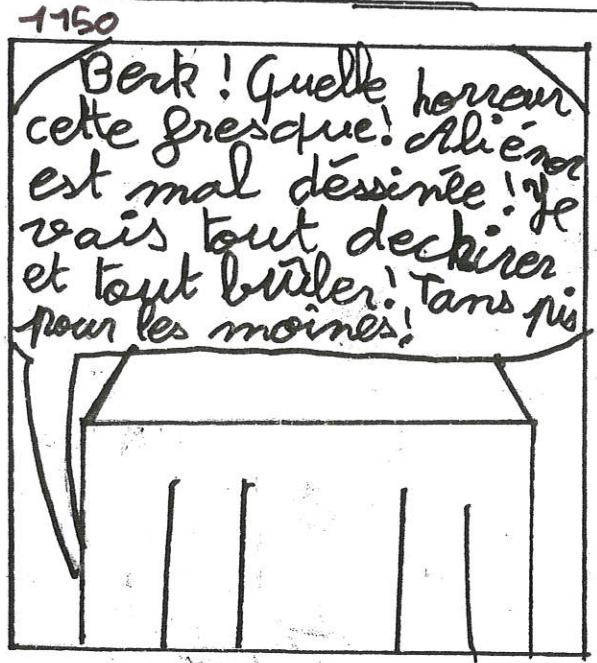 1150
Berk ! Quelle horreur
cette fresque! Aliénor
est mal déssinée ! Je
vais tout dechirer
et tout brûler! Tans pis
pour les moînes!